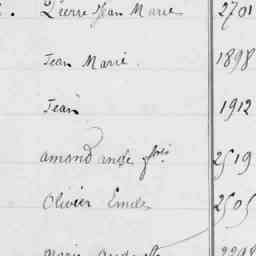 Pierre Jean Marie 2701
Jean Marie. 1898
Jean 1912
amand ange 2519
Olivier Emile 2505
Marie